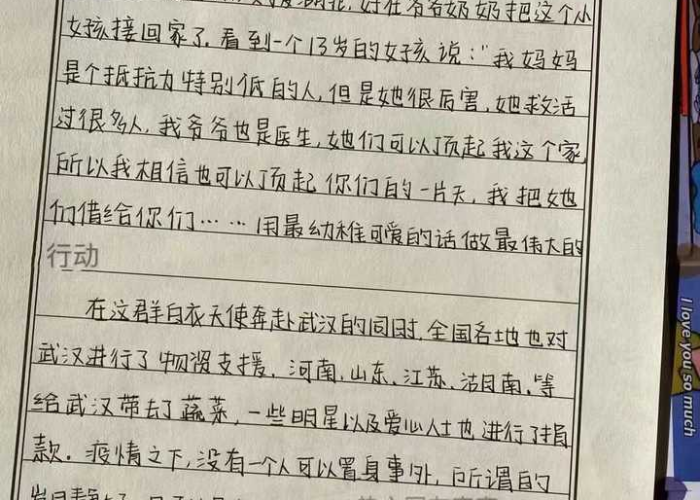 好在爷爷奶奶把这个小
女孩接回家了。看到一个13岁的女孩说：“我妈妈
是个抵抗力特别低的人，但是她很厉害，她救活
过很多人，我爷爷也是医生，她们可以顶起我这个家，
所以我相信也可以顶起你们的一片天，我把她
们借给你们……用最幼稚可爱的话做最伟大的
行动
在这群白衣天使奔赴武汉的同时，全国各地也对
武汉进行了物资支援，河南，山东、江苏、湖南，等
给武汉带去了蔬菜，一些明星以及爱心人士也进行了捐
款。疫情之下，没有一个人可以置身事外，所谓的
岁月静好
I love you so much